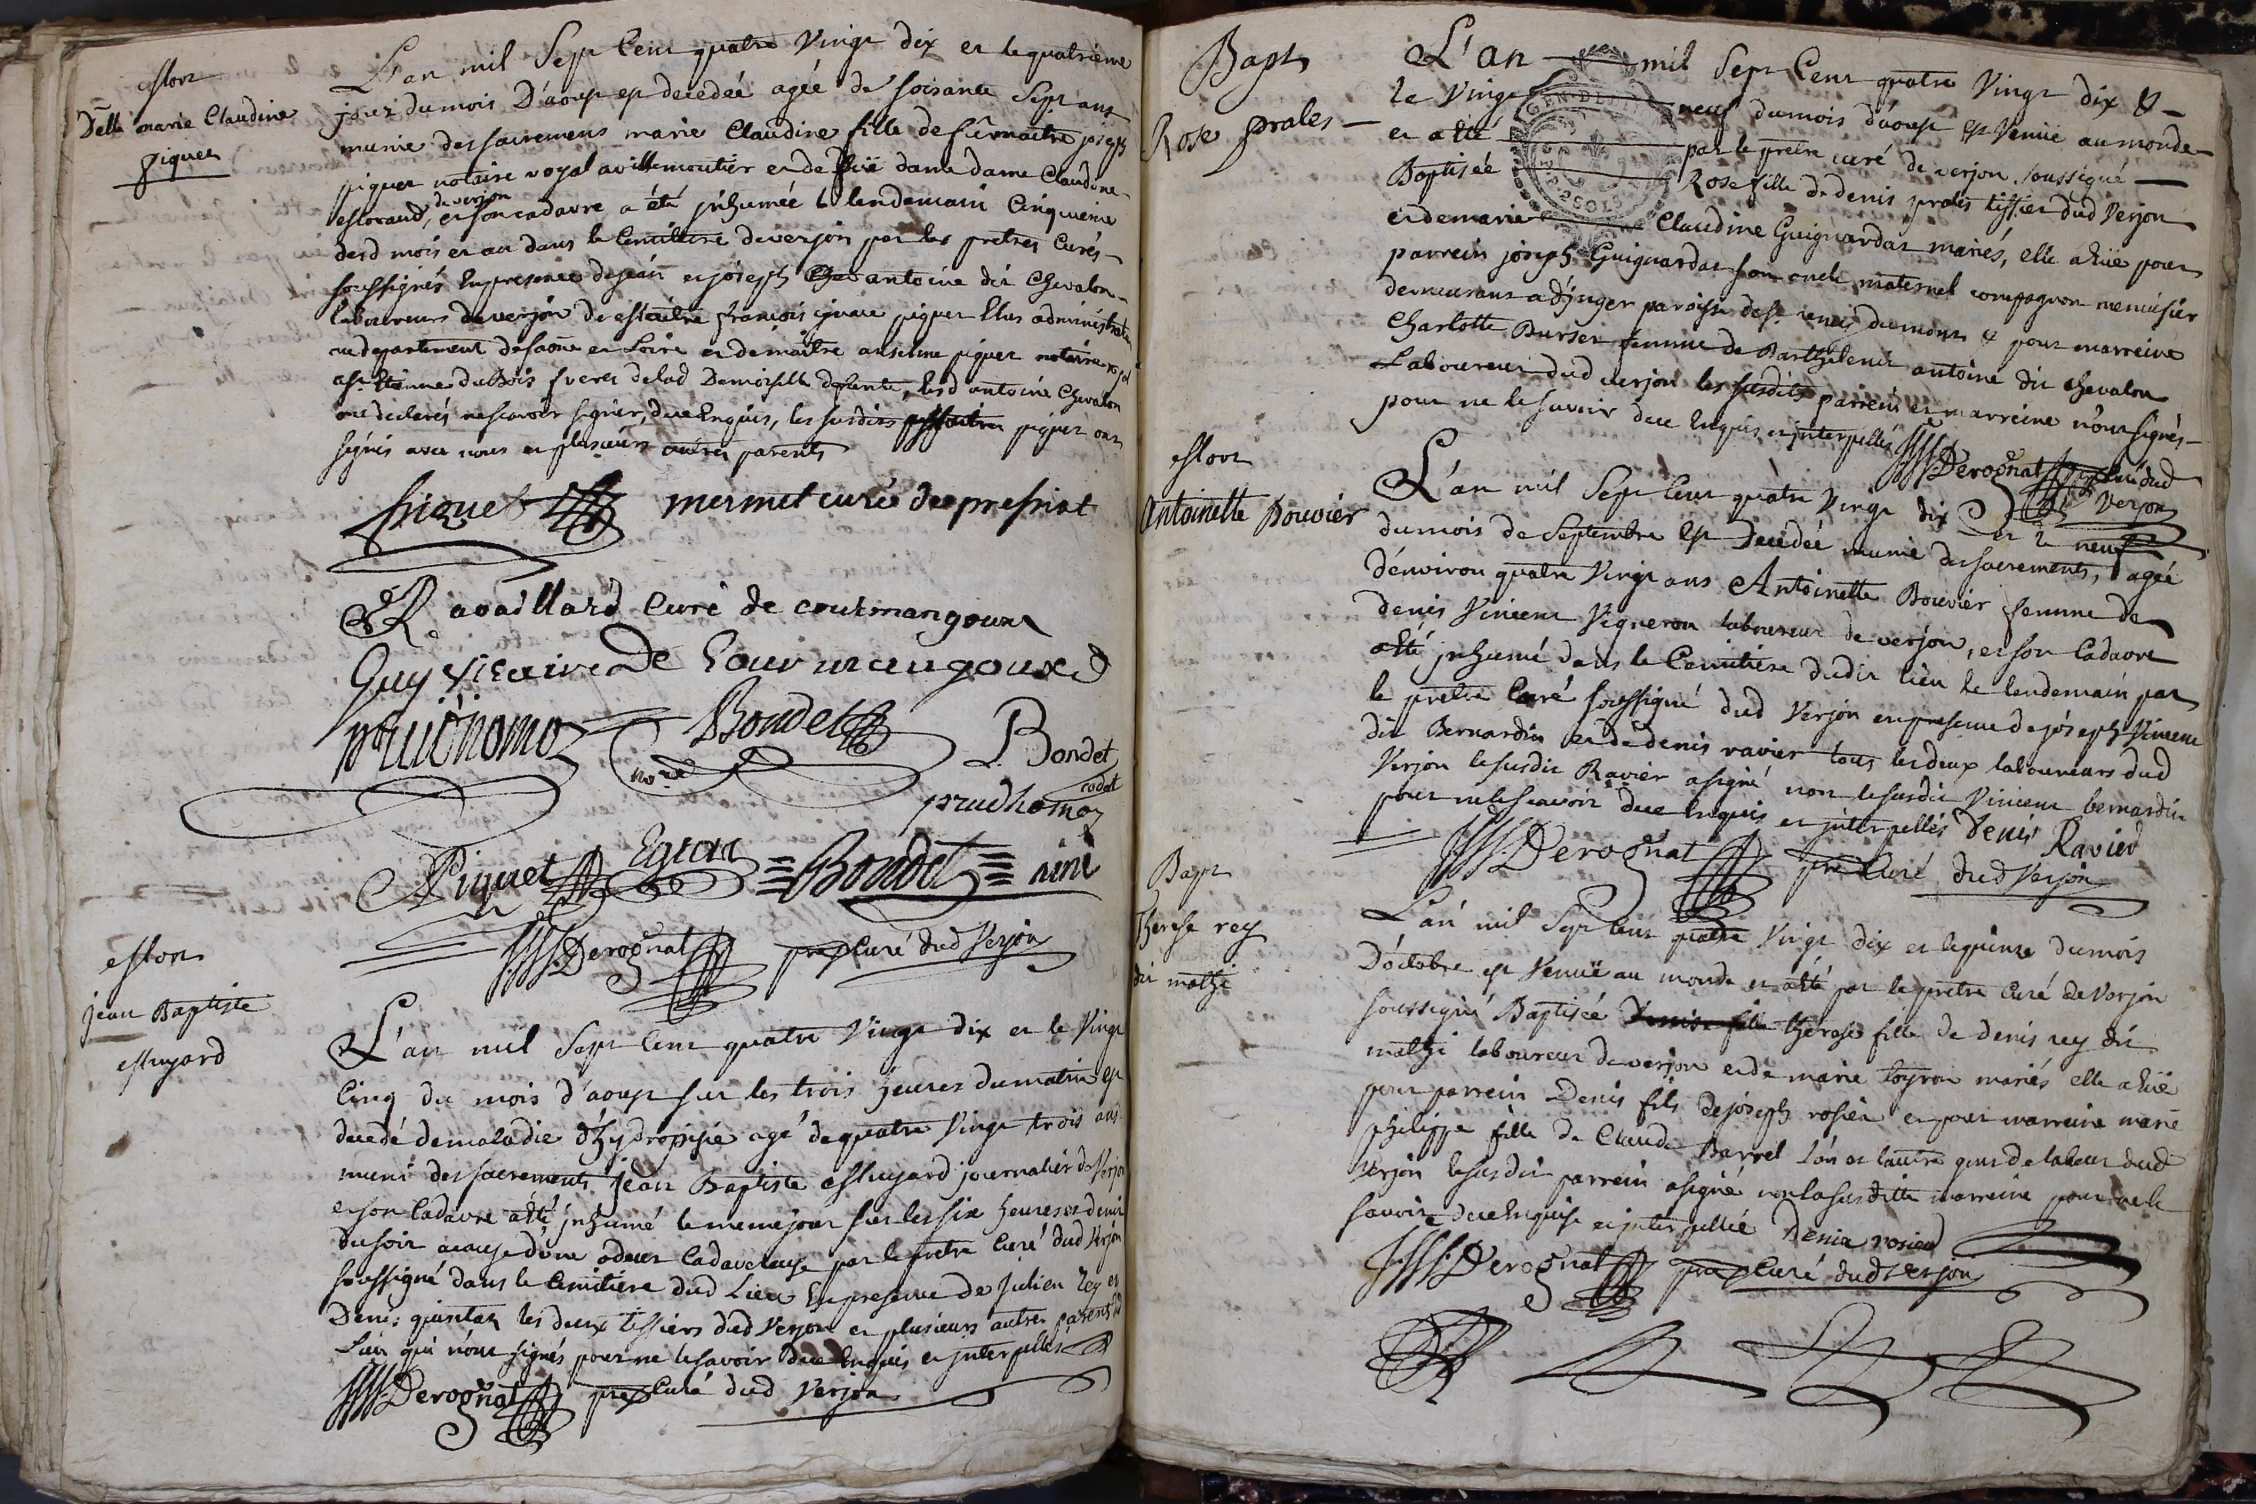 Mort
Delle marie Claudine
piquet
L'an mil Sept Cent quatre Vingt dix et le quatrieme
jour du mois D'aoust est decedée agée de soixante Sept ans
munie des sacremens marie Claudine fille de sieur maitre joseph
piquet notaire royal a villemoutier et de dame Claudine
de verjon
et son cadavre a été jnhumée le lendemain Cinquieme
desd mois et an dans le Cemittiere de verjon par les pretres Curés
soussignés En presence de jean et joseph antoine dit Chevalon
laboureurs de verjon de maitre françois ignace piquet Elus administrateur
au departement de saone et Loire et de maitre anselme piquet notaire royal
a st Etienne du Bois freres de lad Demoiselle defunte, lesd antoine Chevalon
ont declarés ne scavoir signer, due Enquis, les susdits piquet ont
signés avec nous et plusieurs autres parents
piquet mermet curé de pressiat
Ravaillard Curé de courmangoux
Guy vicaire De Courmangoux
prudhomo Bondet
nore
P. Bondet
cadet
prudhomo
A Piquet Egran Bondet ainé
Derognat ptre Curé dud Verjon
Mort
jean Baptiste
Mugard
L'an mil Sept Cent quatre Vingt dix et le Vingt
Cinq du mois d'aoust sur les trois heures du matin est
decedé de maladie d'hydropisie agé de quatre Vingt trois ans
muni des sacrements jean Baptiste Mugard journalier de Verjon
et son Cadavre a été jnhumé le meme jour sur les six heures et demie
du soir a cause d'une odeur Cadavereuse par le pretre Curé dud Verjon
soussigné dans le Cemitiere dud Lieu En presence de Julien Rey et
Denis quintan les deux tissiers dud Verjon et plusieurs autres parents dud
Lieu qui n'ont signés pour ne le savoir due Enquis et jnterpellés
Derognat ptre Curé dud Verjon
Bapt
Rose prales
L'an mil Sept Cent quatre Vingt dix &
le Vingt neuf du mois d'aoust est Venüe au monde
et a Eté par le pretre curé de verjon soussigné
Baptisée Rose fille de denis prales tissier dud Verjon
et de marie Claudine Guignardat mariés, elle a Eüe pour
parrein joseph Guignardat son oncle maternel compagnon menuisier
demeurant a d'jnger paroisse de st remis dumont & pour marreine
Charlotte Burset femme de Barthelemi antoine dit chevalon
Laboureur dud verjon les susdits parrein et marreine n'ont signés
pour ne le savoir due Enquis et jnterpellés
Derognat ptre Curé dud
Verjon
Mort
Antoinette Bouvier
L'an mil Sept Cent quatre Vingt dix et le neuf
du mois de Septembre Est Decedée munie des sacrements, agée
d'environ quatre Vingt ans Antoinette Bouvier femme de
denis Vincent Vigneron laboureur de verjon, et son Cadavre
a Eté jnhumé dans le Cemitiere dudit lieu le lendemain par
le pretre Curé soussigné dud Verjon en presence de joseph Vincent
dit Bernardin et de denis ravier tous les deux laboureurs dud
Verjon le susdit Ravier a signé non le susdit Vincent bernardin
pour ne le scavoir due Enquis et jnterpellés Denis Ravier
Derognat ptre Curé dud Verjon
Bapt
therese rey
dit mathi
L'an mil Sept Cent quatre Vingt dix et le quinze du mois
D'octobre est Venüe au monde et a Eté par le pretre Curé de Verjon
soussigné Baptisée therese fille de denis rey dit
mathi laboureur de verjon et de marie loyron mariés elle a Eüe
pour parrein Denis fils de joseph rosier et pour marreine marie
philippe fille de Claude Barrel l'un et l'autre gens de labeur dud
Verjon le susdit parrein a signé non la susditte marreine pour ne le
savoir due Enquise et jnterpellée Denis rosier
Derognat ptre Curé dud Verjon